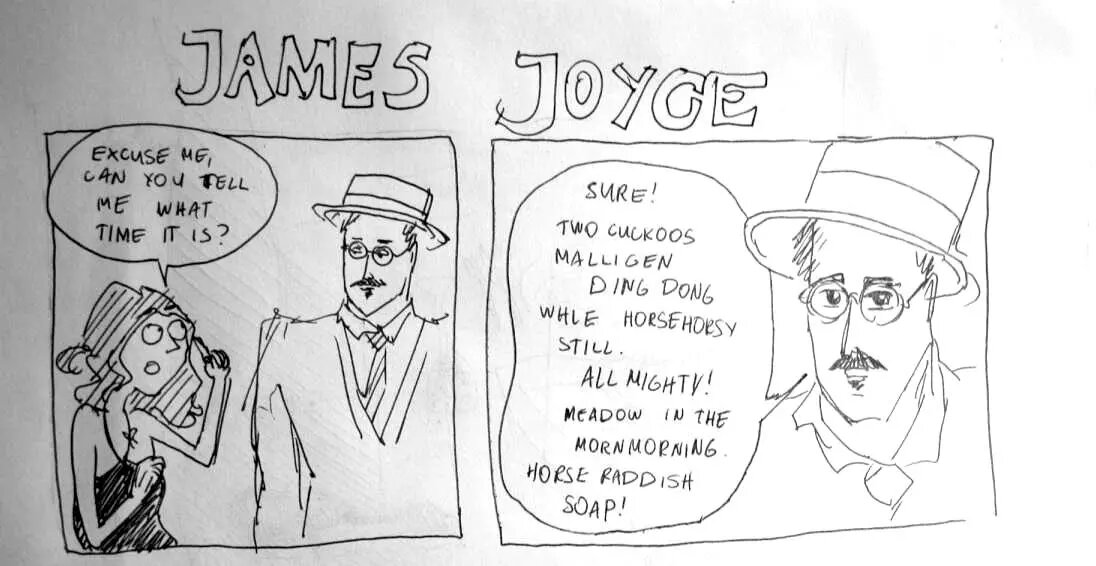 JAMES JOYCE
EXCUSE ME,
CAN YOU TELL
ME WHAT
TIME IT IS?
SURE!
TWO CUCKOOS
MALLIGEN
DING DONG
WHLE HORSEHORSY
STILL.
ALL MIGHTY!
MEADOW IN THE
MORNMORNING.
HORSE RADDISH
SOAP!